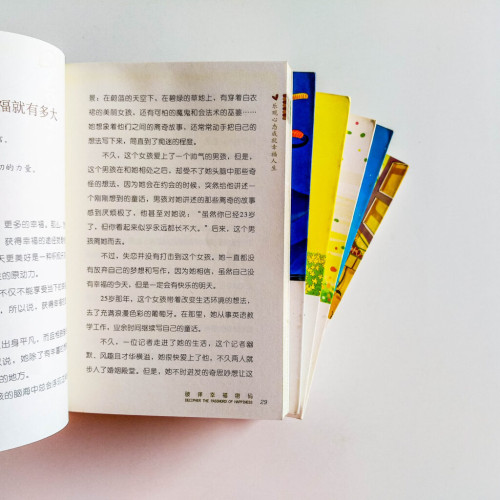 福就有多大
切的力量。
更多的幸福。那么，
获得幸福的途径
天更美好是一种积极
的原动力。
不仅不能享受当下
，所以说，获得
出身平凡，而且相
以说，她除了有丰富的
的地方。
孩的脑海中总会浮现
景：在蔚蓝的天空下，在碧绿的草地上，有穿着白衣
裙的美丽女孩，还有可怕的魔鬼和会法术的巫婆……
她想象着他们之间的离奇故事，还常常动手把自己的
想法写下来，简直到了痴迷的程度。
不久，这个女孩爱上了一个帅气的男孩，但是，
这个男孩在和她相处之后，却受不了她头脑中那些奇
怪的想法，因为她会在约会的时候，突然给他讲述一
个刚刚想到的童话，男孩对她讲述的那些离奇的故事
感到厌烦极了，他甚至对她说：“虽然你已经23岁
了，但你看起来似乎永远都长不大。”后来，这个男
孩离她而去。
不过，失恋并没有打击到这个女孩。她一直都没
有放弃自己的梦想和写作，因为她相信，虽然自己没
有幸福的今天，但是一定会有快乐的明天。
25岁那年，这个女孩带着改变生活环境的想法，
去了充满浪漫色彩的葡萄牙。在那里，她从事英语教
学工作，业余时间继续写自己的童话。
不久，一位记者走进了她的生活，这个记者幽
默、风趣且才华横溢，她很快爱上了他，不久两人就
步入了婚姻殿堂。但是，她不时迸发的奇思妙想让这
乐观心态成就幸福人生
破译幸福密码
DECIPHER THE PASSWORD OF HAPPINESS
29